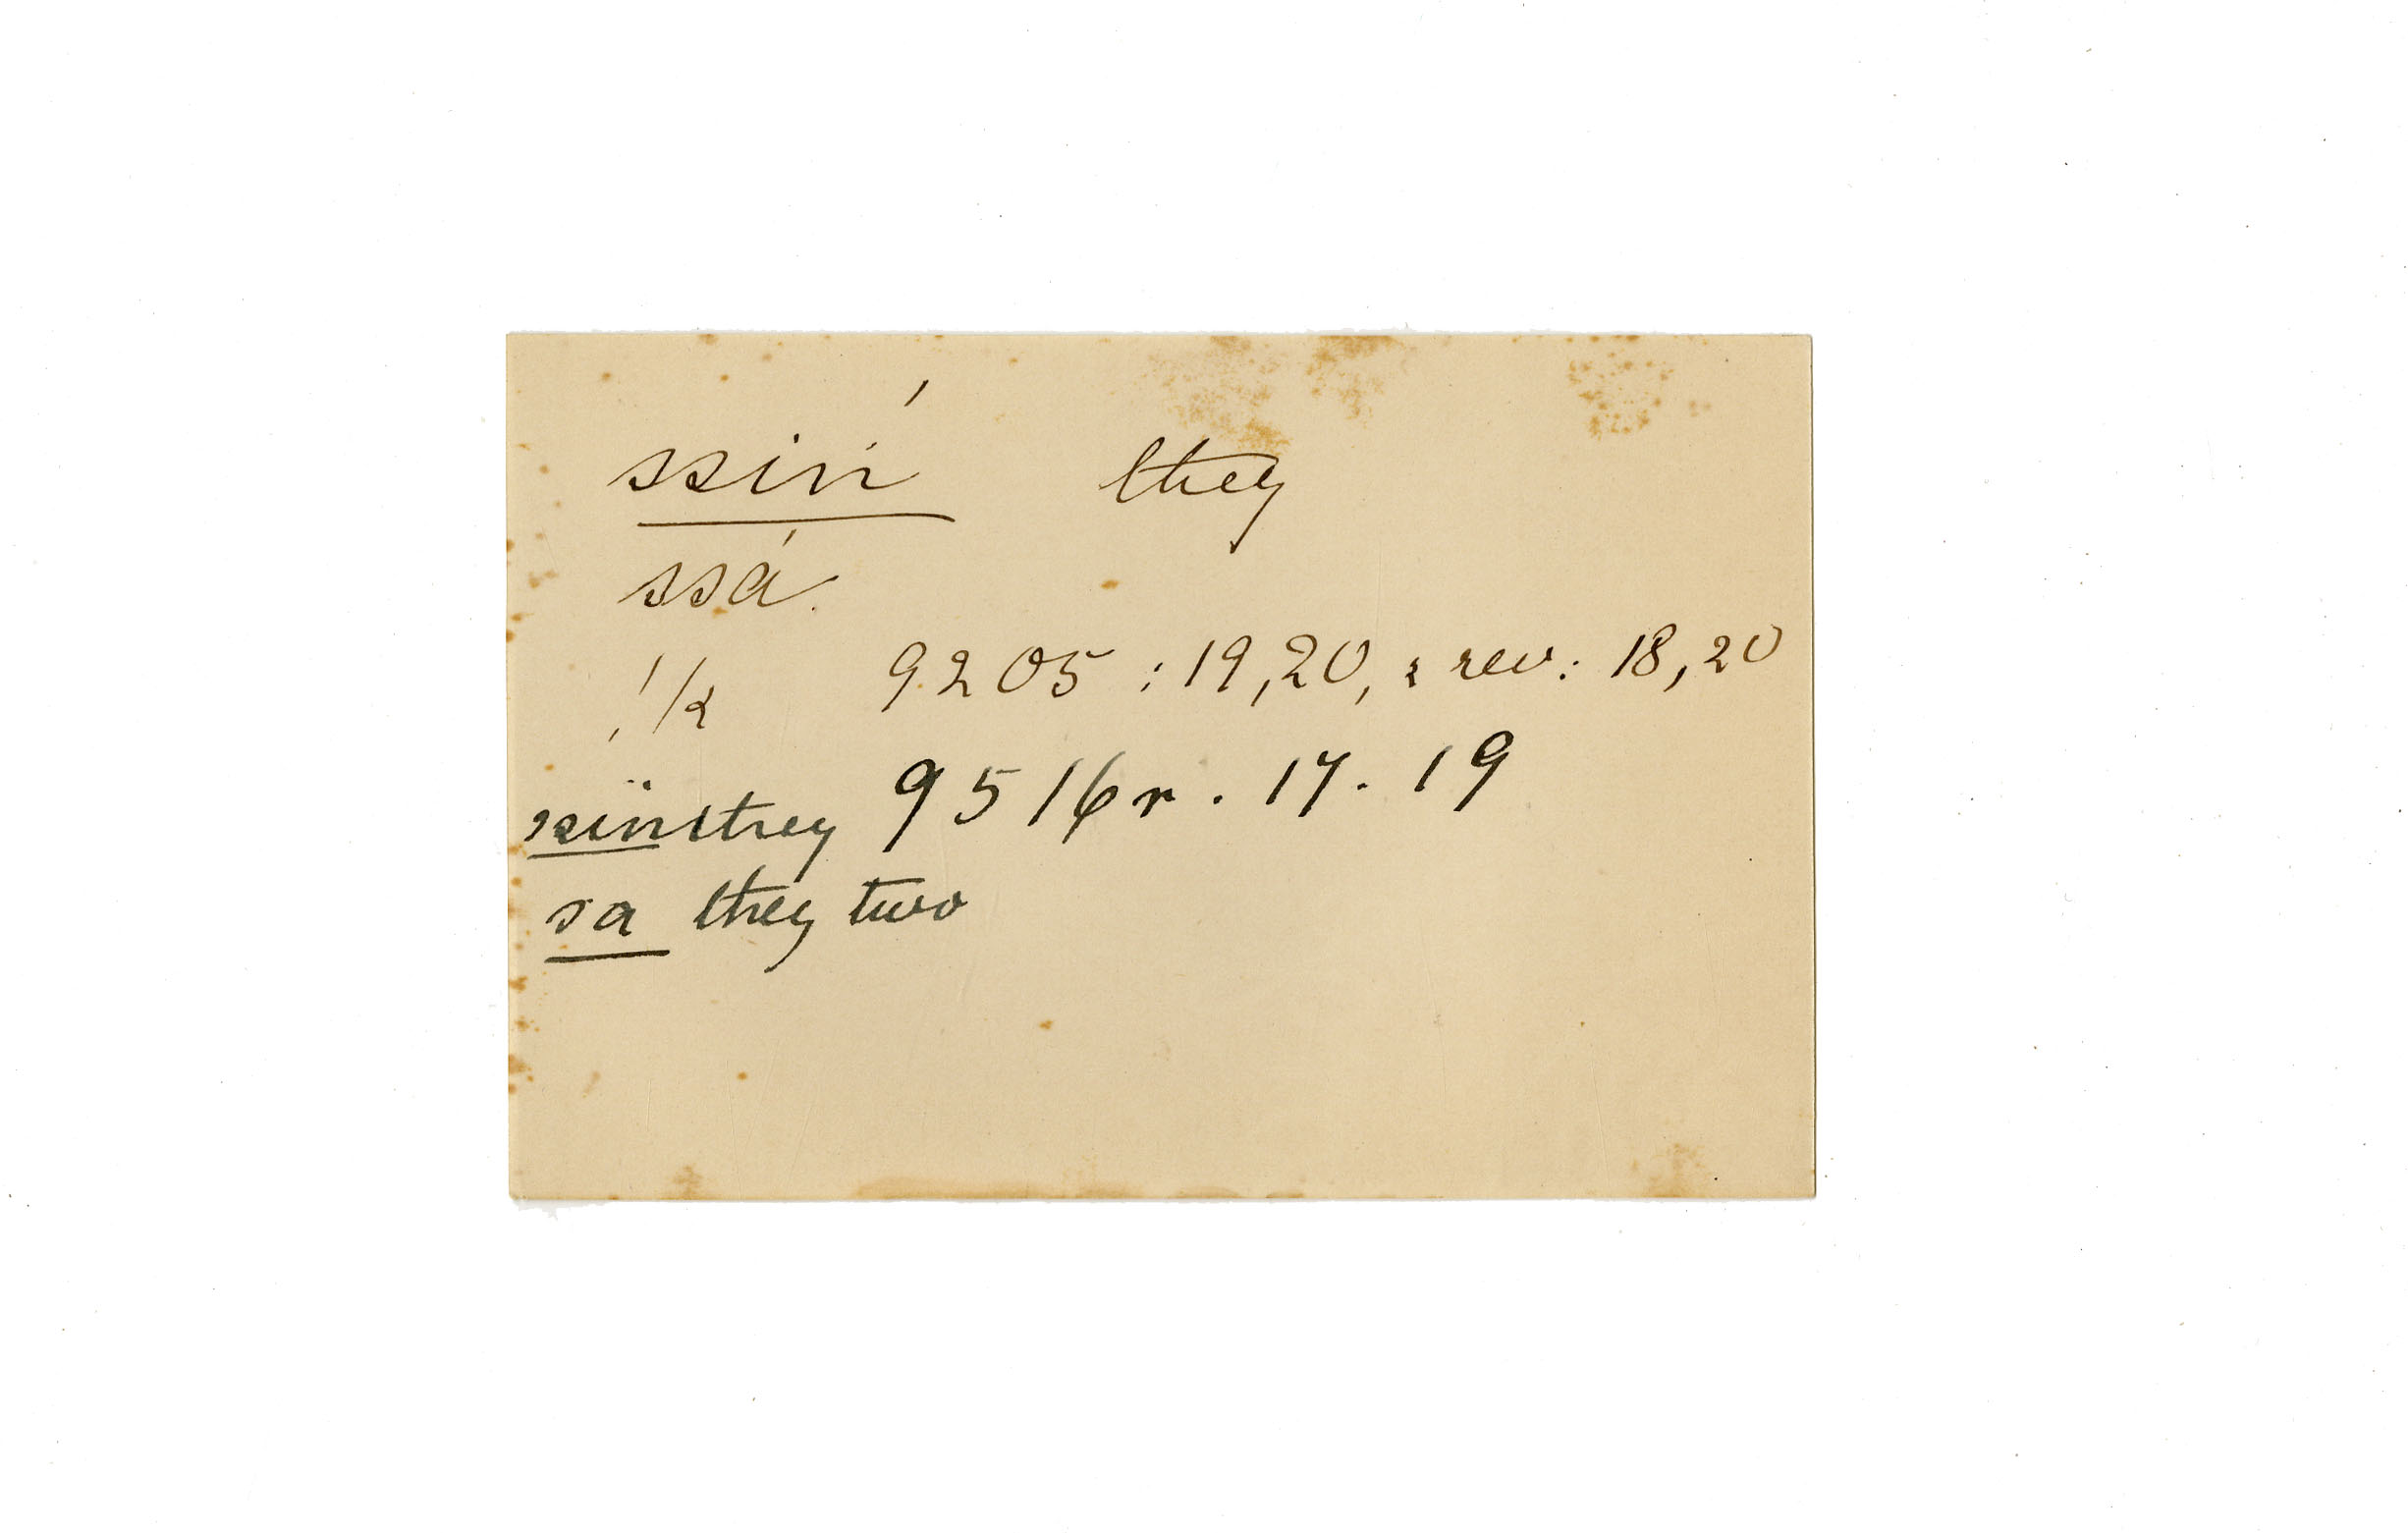 ssin they
ssá
!/2 9205 : 19, 20, & rev. 18, 20
ssin they 9516r. 17. 19
sa they two